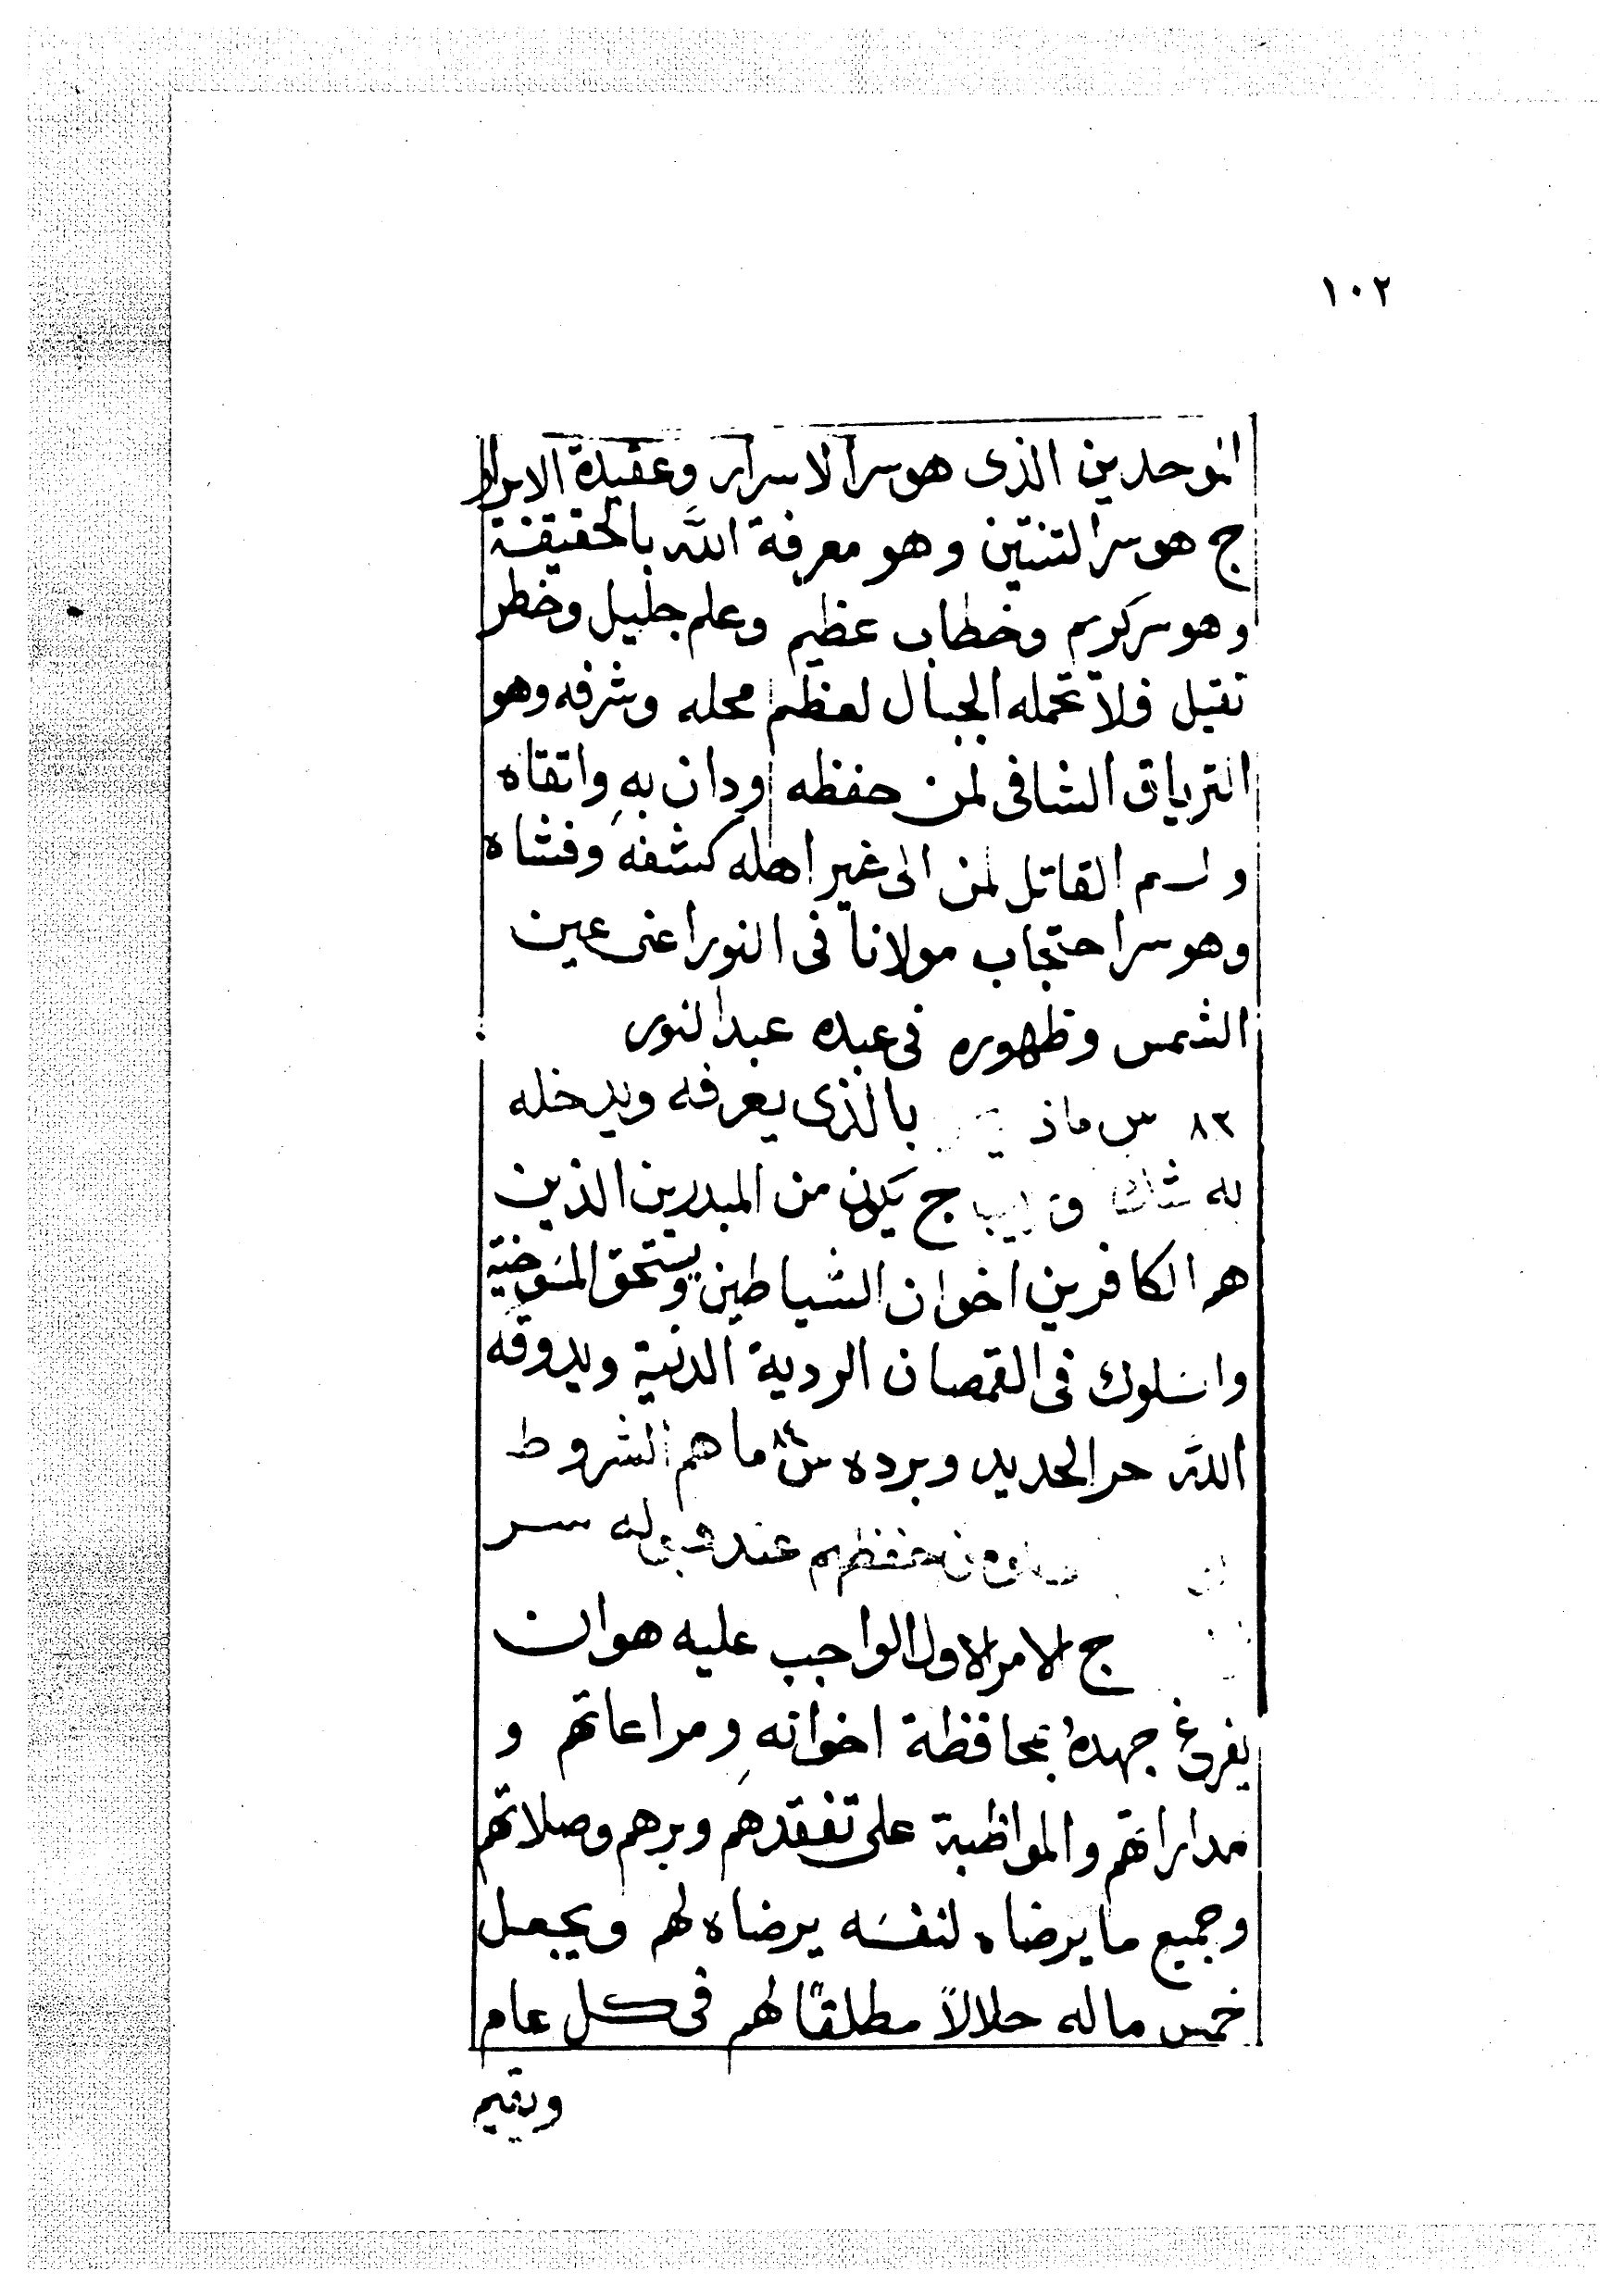 ١٠٢
الموحدين الذى هو سر الاسرار وعقيدة الابرار
ج هو سر التنتين وهو معرفة الله بالحقيقة
وهو سر كريم وخطاب عظيم وعلم جليل وخطر
تقيل فلا تحمله الجبال لعظم محله وشرفه وهو
الترياق الشافى لمن حفظه ودان به واتقاه
ولسم القاتل لمن الى غير اهله كشفه وفشاه
وهو سر احتجاب مولانا فى النور اعنى عين
الشمس وظهوره فى عبده عبد النور
٨٣ س ماذ بالذى يعرفه ويدخله
به شك ج يكون من المبدرين الذين
هم الكافرين اخوان الشياطين ويستحق المسوخية
واسلوك فى القمصان الردية الدنية ويدوقه
الله حر الحديد وبرده س ٨٤ ما هم الشروط
حفظهم عند قبوله سر
ج الامر الاول الواجب عليه هو ان
يفرغ جهده بمحافظة اخوانه ومراعاتهم و
مداراتهم والمواظبة على تفقدهم وبرهم وصلاتهم
وجميع ما يرضاه لنفسه يرضاه لهم ويجعل
خمس ماله حلالاً مطلقًا لهم فى كل عام
ويقيم